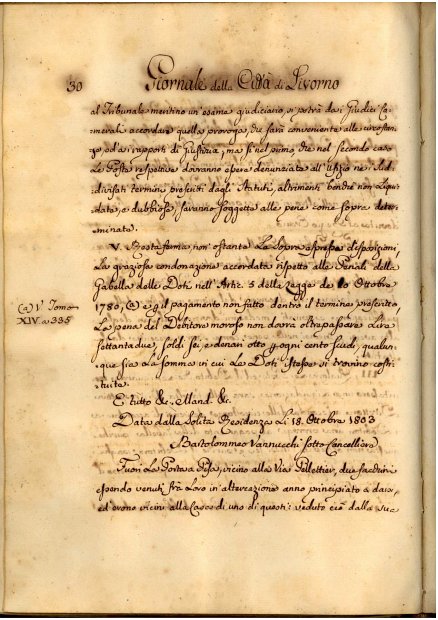 30 Giornale della Città di Livorno
al Tribunale meritino un'esame giudiciario, si potrà dai Giudici Ca-
merali accordare quella proroga, che sarà conveniente alle circostan-
ze, ed ai rapporti di Giustizia, ma sì nel primo, che nel secondo caso
Le Poste respettive dovranno essere denunziate all'Ufizio nei Sud-
divisati termini prescritti dagli Statuti, altrimenti benchè non Liqui-
data, o dubbiosa, saranno soggette alle pene come sopra deter-
minate.
V. Resta ferma non' ostante Le Sopra espresse disposizioni,
La graziosa condonazione accordata rispetto alle Penali della
Gabella delle Doti nell'Artic. 5 della Legge de 10 Ottobre
(a) V. Tomo
XIV. a 335
1780, (a) e il pagamento non fatto dentro il termine prescritto,
La pena del Debitore moroso non dovrà oltrepassare Lire
settantadue, soldi sei, e denari otto ogni cento scudi, qualun-
que sia La somma in cui Le Doti istesse si trovino costi-
tuite.
E tutto &c. Mand. &c.
Data dalla Solita Residenza Li 18. Ottobre 1803
Bartolommeo Vannucchi sotto Cancelliere
Fuori La Porta a Pisa, vicino alla Via Pellettier, due
essendo venuti fra Loro in altercazione anno principiato a darsi,
ed erono vicini alla Casa di uno di questi: veduto ciò dalla sua